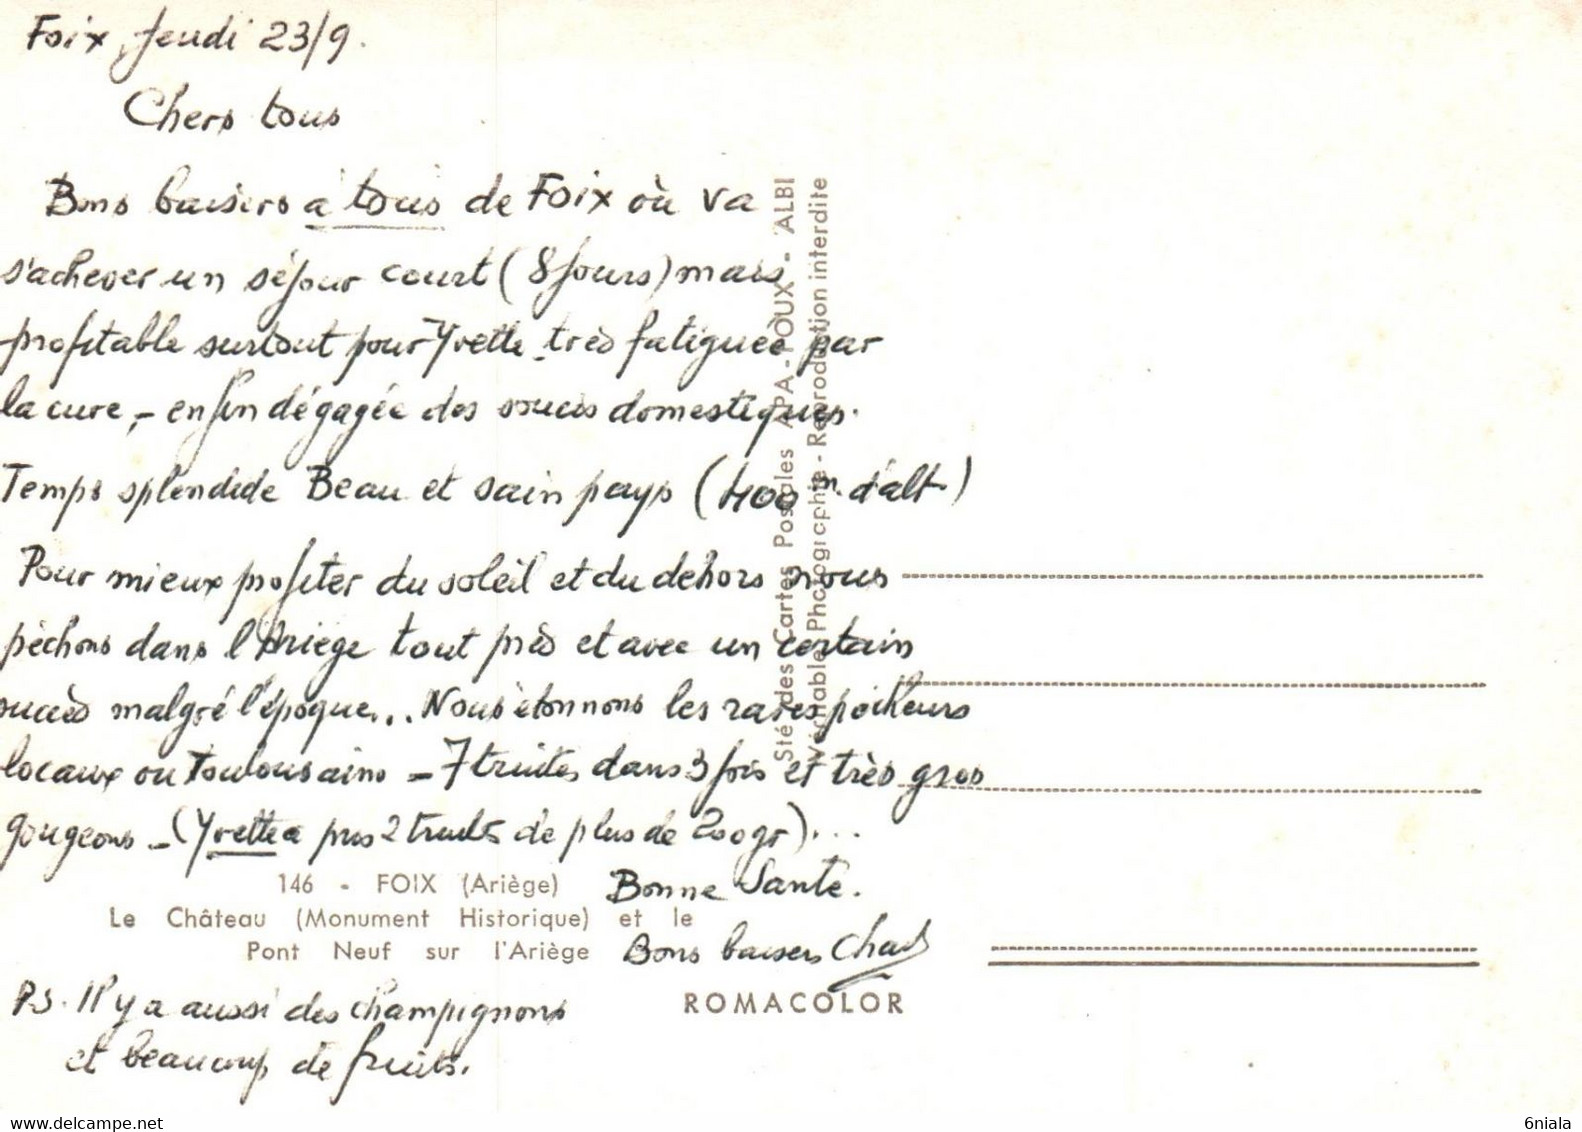 Foix, Jeudi 23/9.
Chers tous
Bons baisers à tous de Foix où va
s'achever un séjour court (8 jours) mais
profitable surtout pour Yvette très fatiguée par
la cure, - enfin dégagée des soucis domestiques.
Temps splendide Beau et sain pays (400 m. d'alt.)
Pour mieux profiter du soleil et du dehors nous
pêchons dans l'Ariège tout près et avec un certain
succès malgré l'époque... Nous étonnons les rares pêcheurs
locaux ou Toulousains - 7 truites dans 3 fois et très gros
gougeons - (Yvette a pris 2 truites de plus de 200 gr)...
146 - FOIX (Ariège)
Le Château (Monument Historique) et le
Pont Neuf sur l'Ariège
Bonne Santé.
Bons baisers
PS. Il y a aussi des champignons
et beaucoup de fruits.
ROMACOLOR
Sté des Cartes Postales APA-POUX - ALBI
Véritable Photographie - Reproduction interdite
delcampe.net
6niala